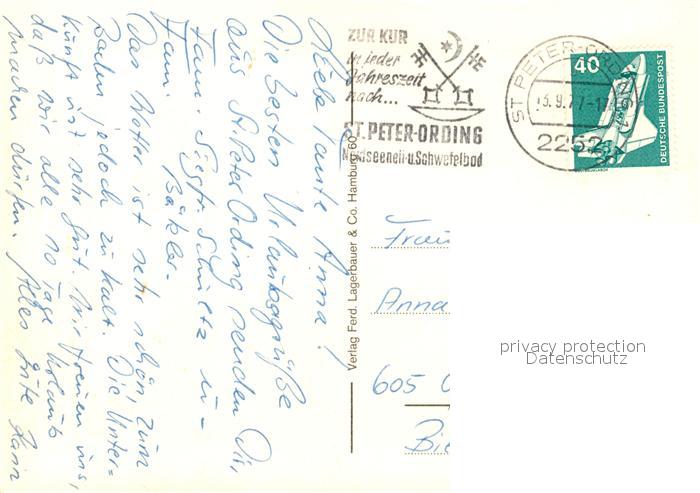 Liebe Tante Anna!
Die besten Urlaubsgrüße
aus St. Peter Ording senden Dir,
Fam. Siegfr. Schultz u.-
Fam. Bäkler-
Das Wetter ist sehr schön, zum
Baden jedoch zu kalt. Die Unter=
kunft ist sehr gut. Wir freuen uns,
daß wir alle 10 Tage Urlaub
machen dürfen. Alles Gute
Verlag Ferd. Lagerbauer & Co. Hamburg 60
ZUR KUR
in jeder
Jahreszeit
nach...
ST. PETER-ORDING
Nordseeheil- u. Schwefelbad
ST PETER-ORDING 1
13.9.77-17
2252
40
DEUTSCHE BUNDESPOST
Frau
Anna
605
Bie
privacy protection
Datenschutz